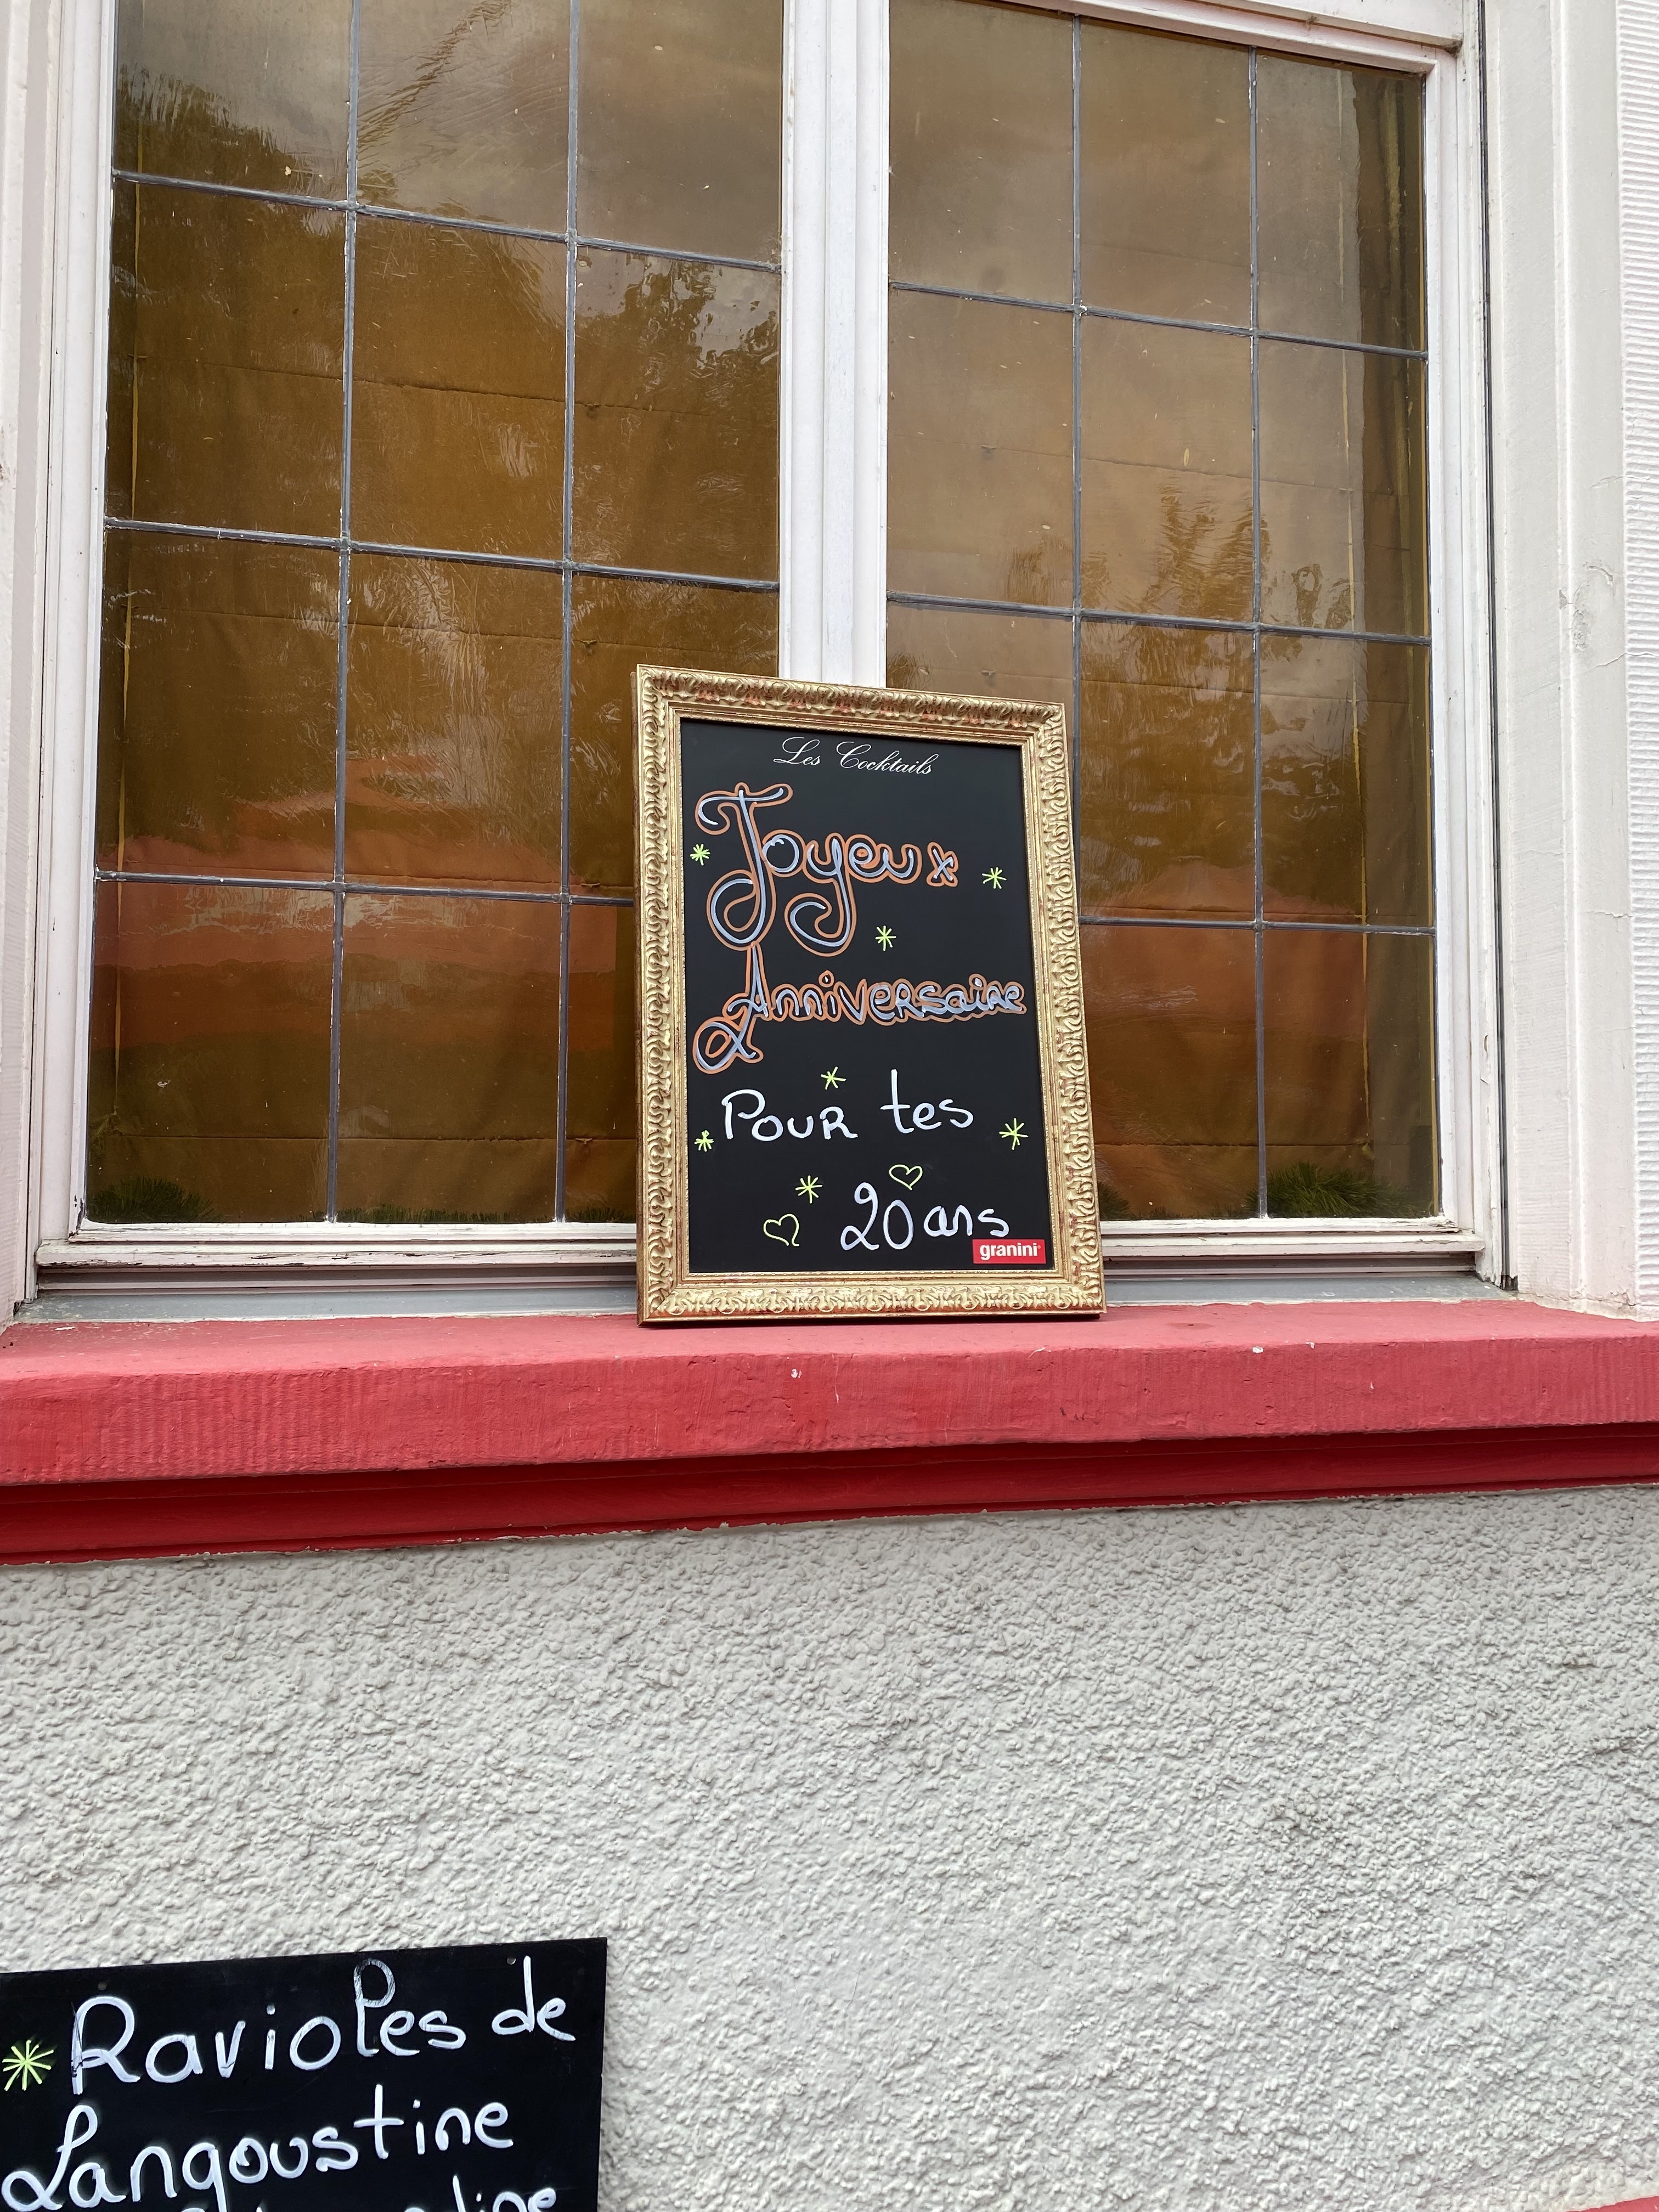 Les Cocktails
Joyeux
Anniversaire
Pour tes
20 ans
granini
Ravioles de
Langoustine